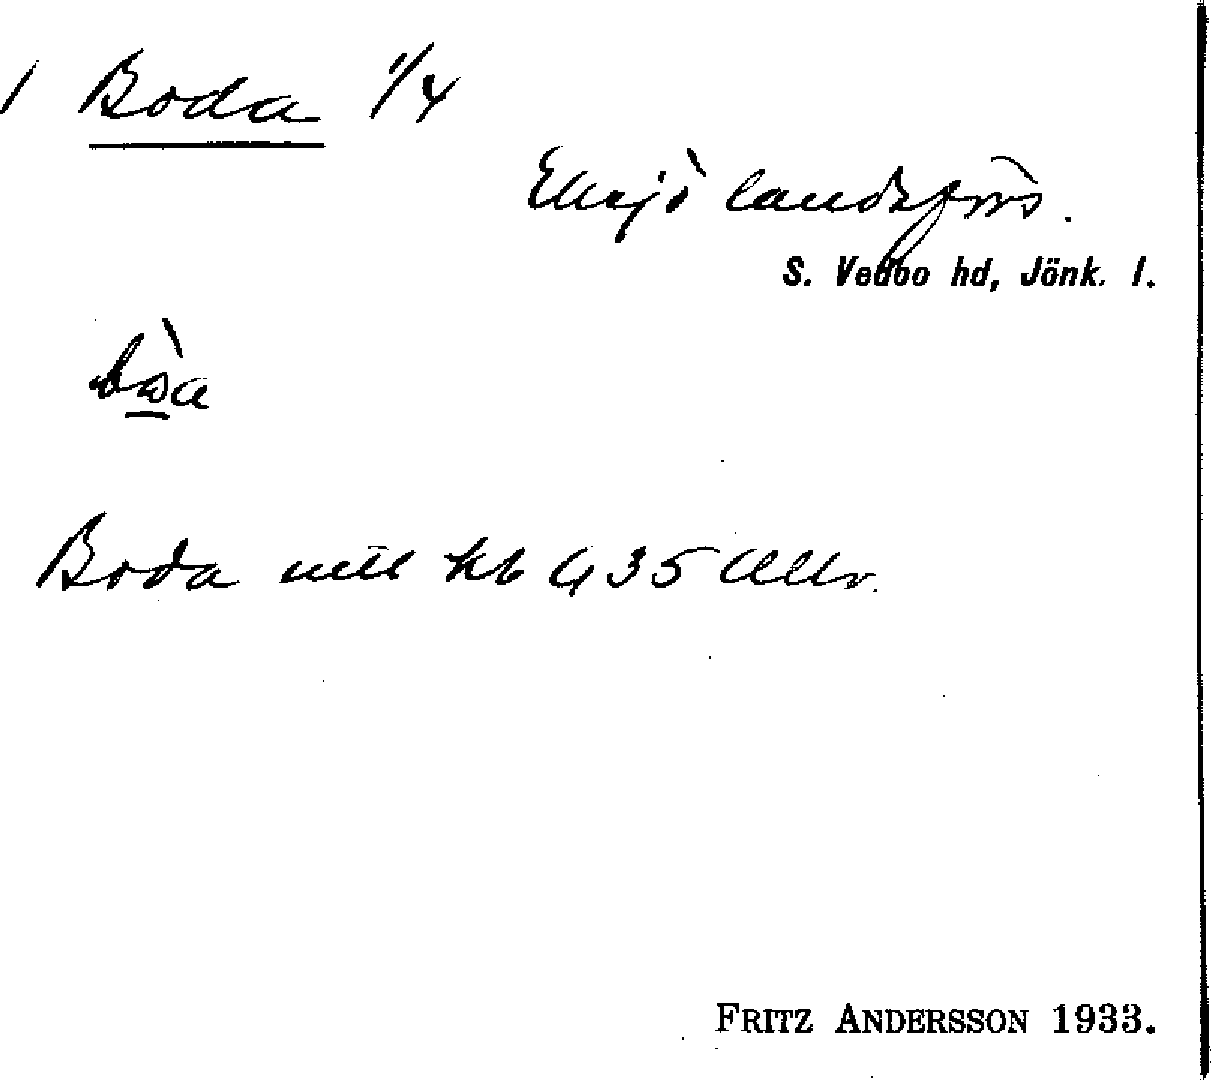 1 Boda 1/4
Eksjö landsförs.
S. Vedbo hd, Jönk. l.
Boda mtl kb G 35 Allm.
FRITZ ANDERSSON 1933.